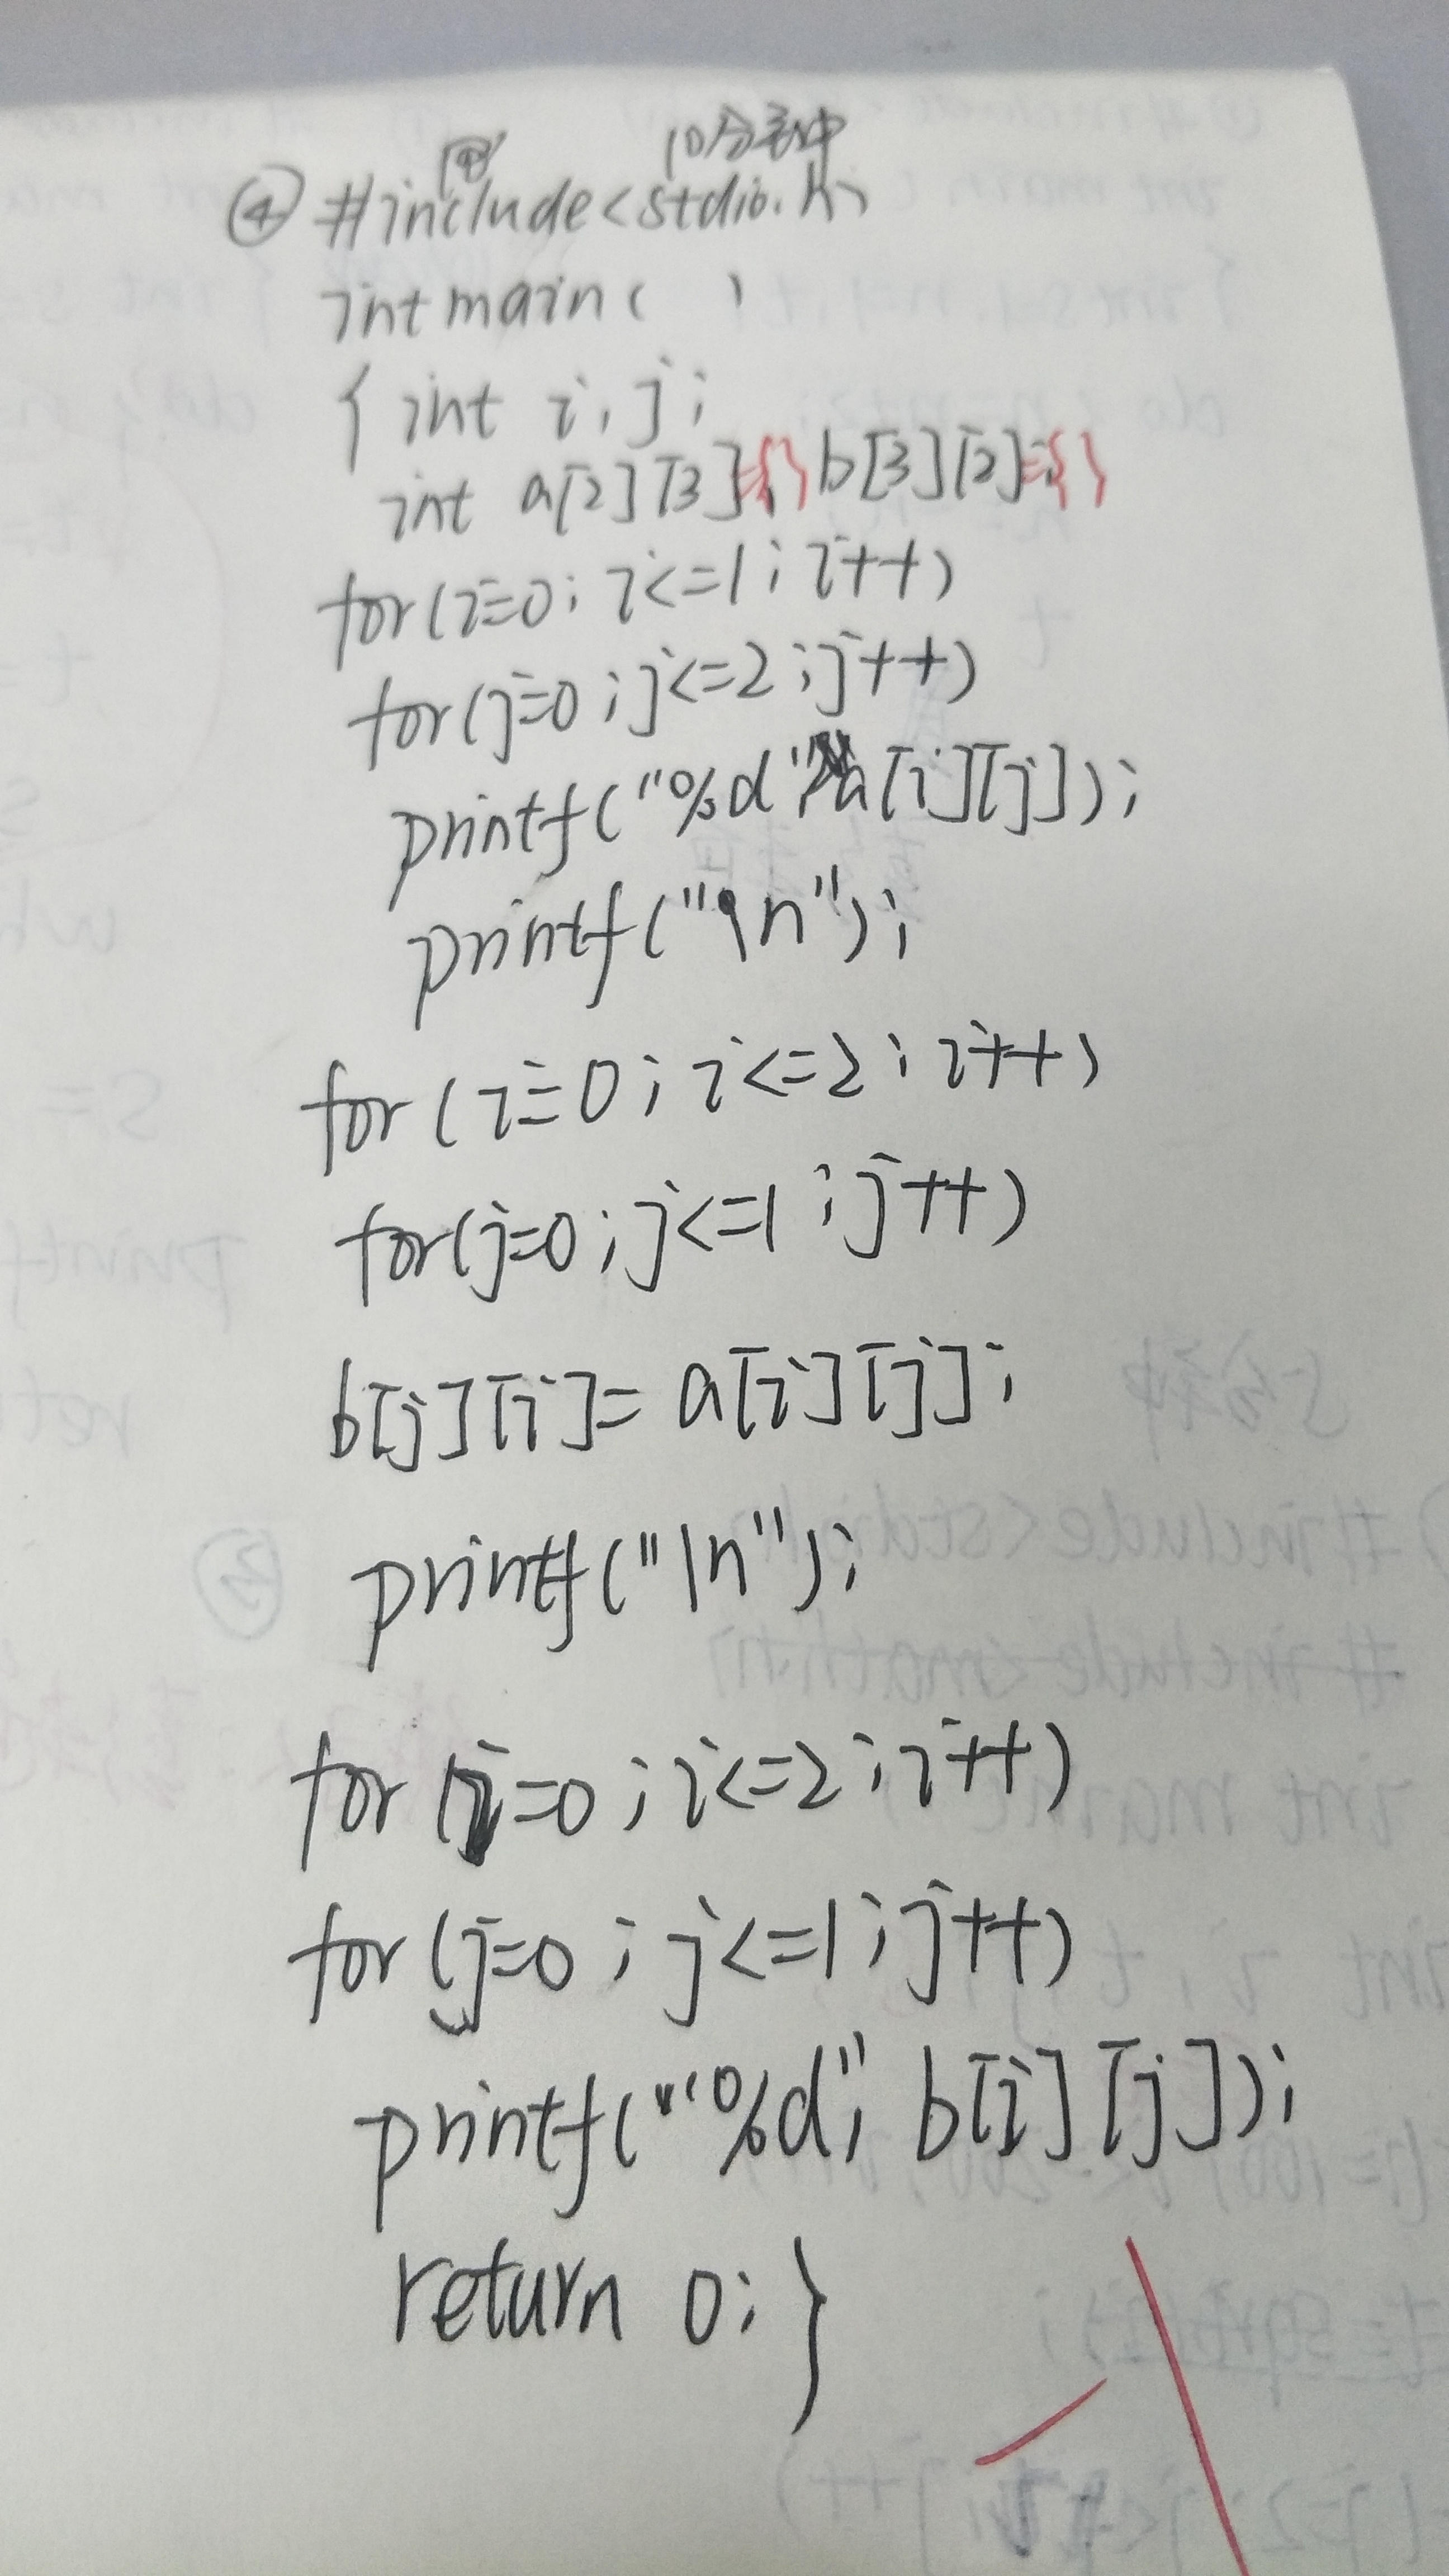 10分钟
④ #include<stdio.h>
int main( )
{ int i,j;
int a[2][3]={}, b[3][2];={}
for(i=0; i<=1; i++)
for(j=0; j<=2; j++)
printf("%d", a[i][j]);
printf("\n");
for(i=0; i<=2; i++)
for(j=0; j<=1; j++)
b[j][i]= a[i][j];
printf("\n");
for(i=0; i<=2; i++)
for(j=0; j<=1; j++)
printf("%d", b[i][j]);
return 0; }